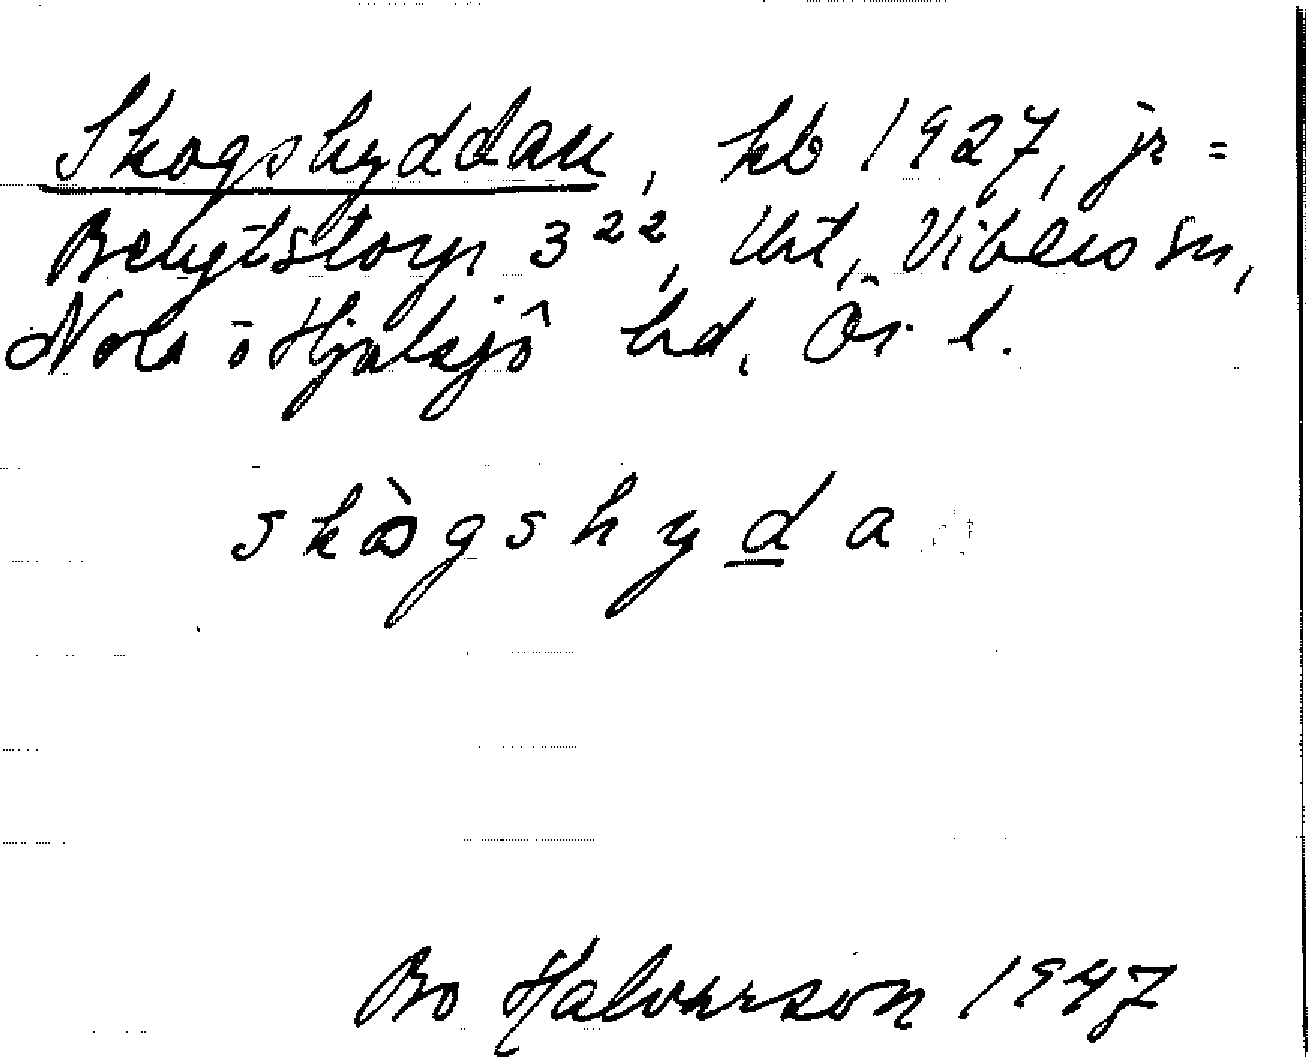 Skogshyddan, kb 1927, jr =
Bengtstorp 3²², Urt, Vibers sn,
Nora o Hjulsjö hd, Ör. l.
skògshyda
Bo Halvarson 1947